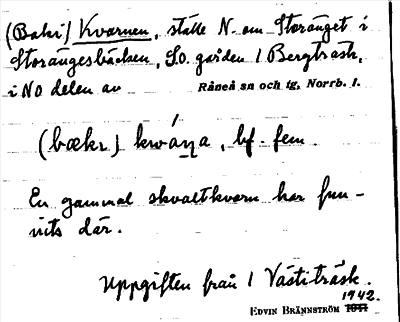 (Bakr) Kvarnen, ställe N. om Storänget i
Storängesbäcken, S.O. gården 1 Bergträsk,
i NO delen av Råneå sn och tg, Norrb. l.
(bækr) kwána, bf. fem.
En gammal skvaltkvarn har fun-
nits där.
Uppgiften från 1 Västiträsk.
1942.
EDVIN BRÄNNSTRÖM 1941